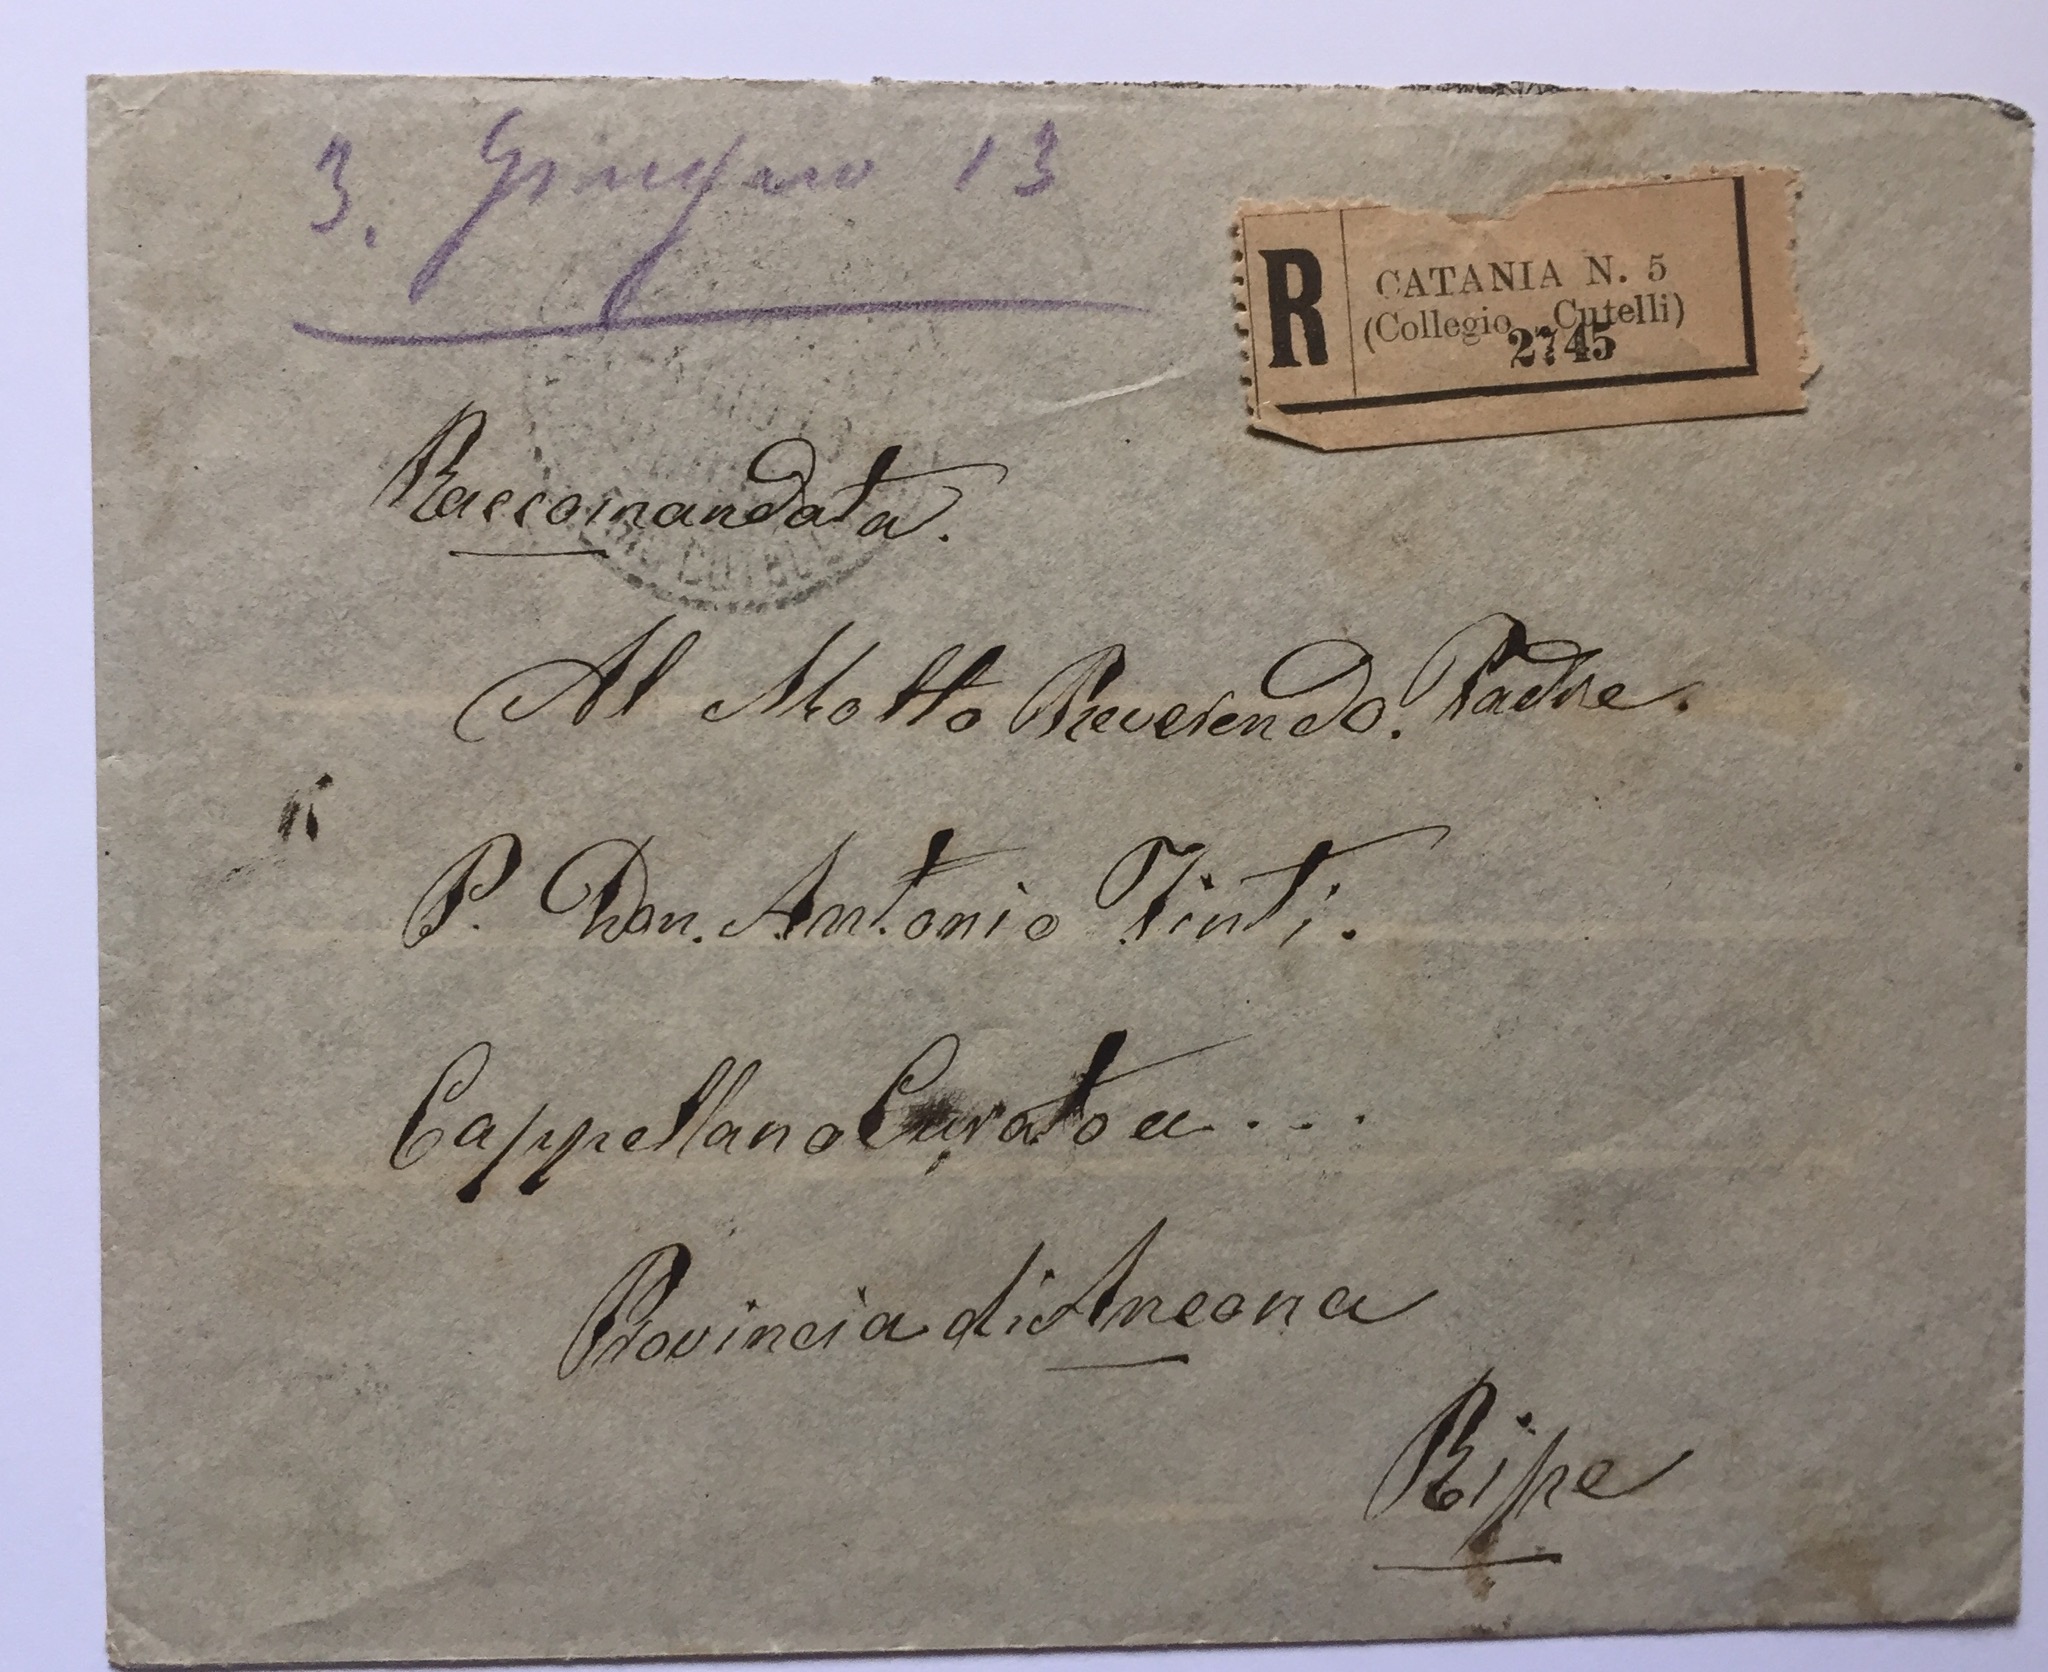 3. Giugno 13
R
CATANIA N. 5
(Collegio Cutelli)
2745
Raccomandata.
CUTELLI
Al Molto Reverendo. Padre.
P. Don. Antonio Tinti.
Cappellano Curato a...
Provincia di Ancona
Ripe